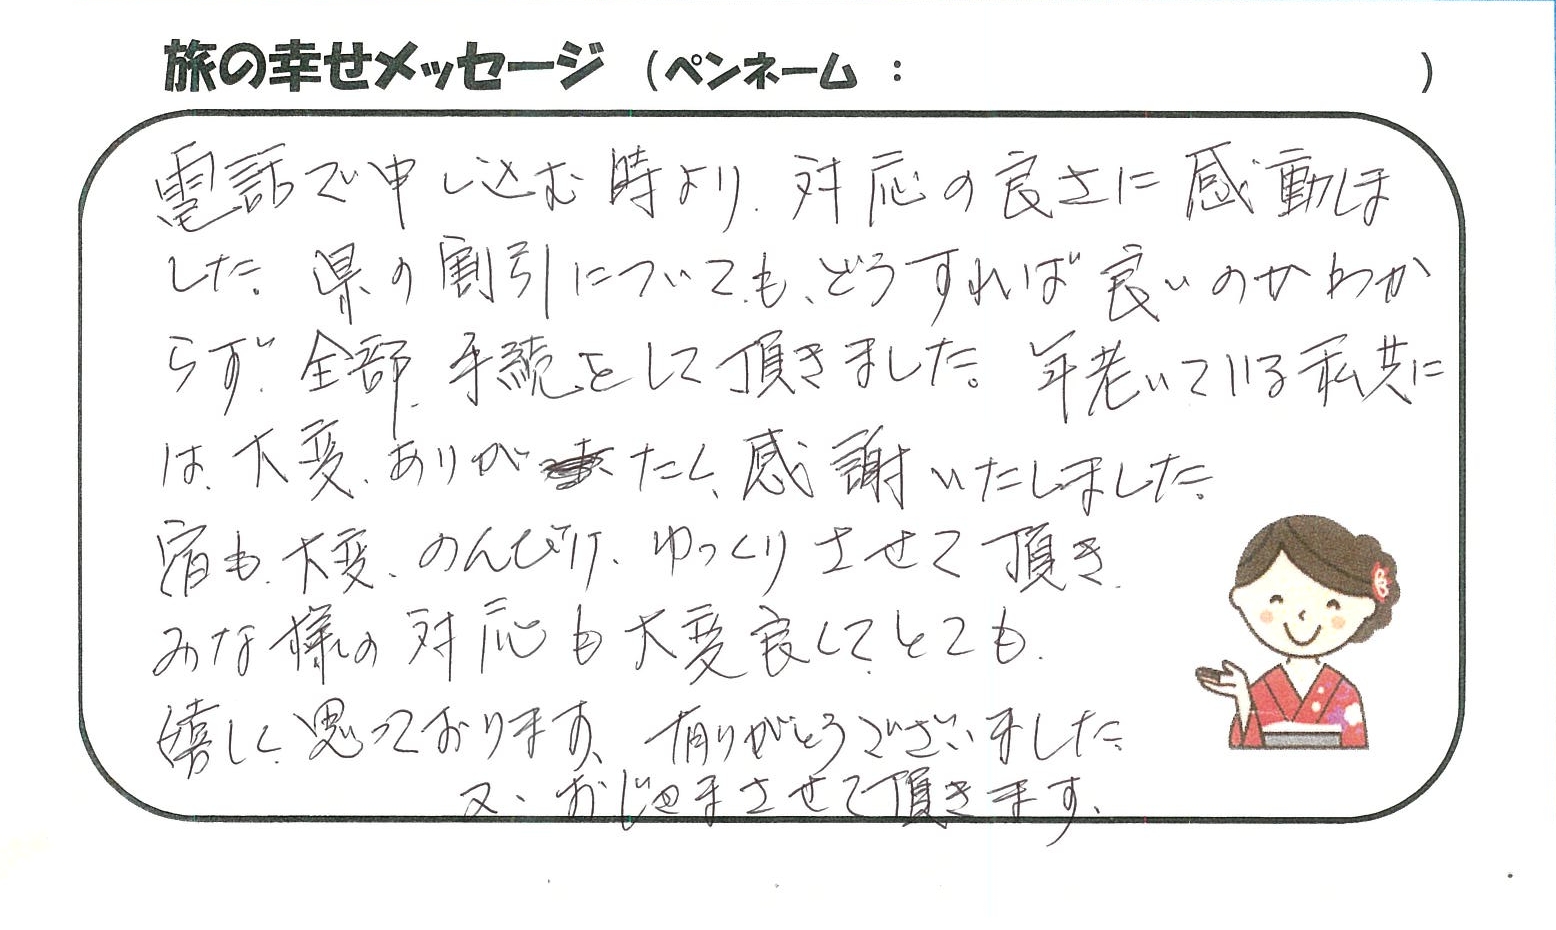 旅の幸せメッセージ （ペンネーム ： ）
電話で申し込む時より、対応の良さに感動しま
した。県の割引についても、どうすれば良いのかわか
らず、全部、手続をして頂きました。年老いている私共に
は、大変、ありがたく、感謝いたしました。
宿も、大変、のんびり、ゆっくりさせて頂き、
みな様の対応も大変良くて、とても、
嬉しく思っております。有りがとうございました。
又、おじゃまさせて頂きます。